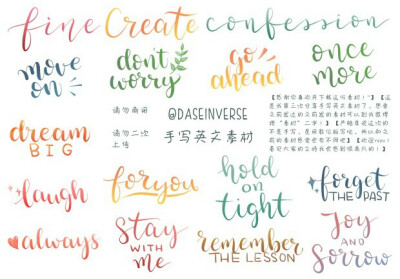 fine Create confession
move on
don't worry
go ahead
once more
dream BIG
请勿商用
请勿二次上传
@DASEINVERSE
手写英文素材
laugh
for you
hold on tight
forget THE PAST
always
stay WITH ME
remember THE LESSON
Joy AND Sorrow